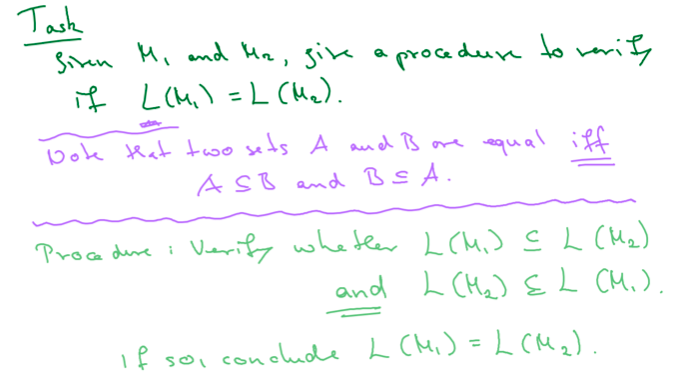 Task
Given M₁ and M₂, give a procedure to verify
if L(M₁) = L(M₂).
Note that two sets A and B are equal iff
A ⊆ B and B ⊆ A.
Procedure : Verify whether L(M₁) ⊆ L(M₂)
and L(M₂) ⊆ L(M₁).
If so, conclude L(M₁) = L(M₂).